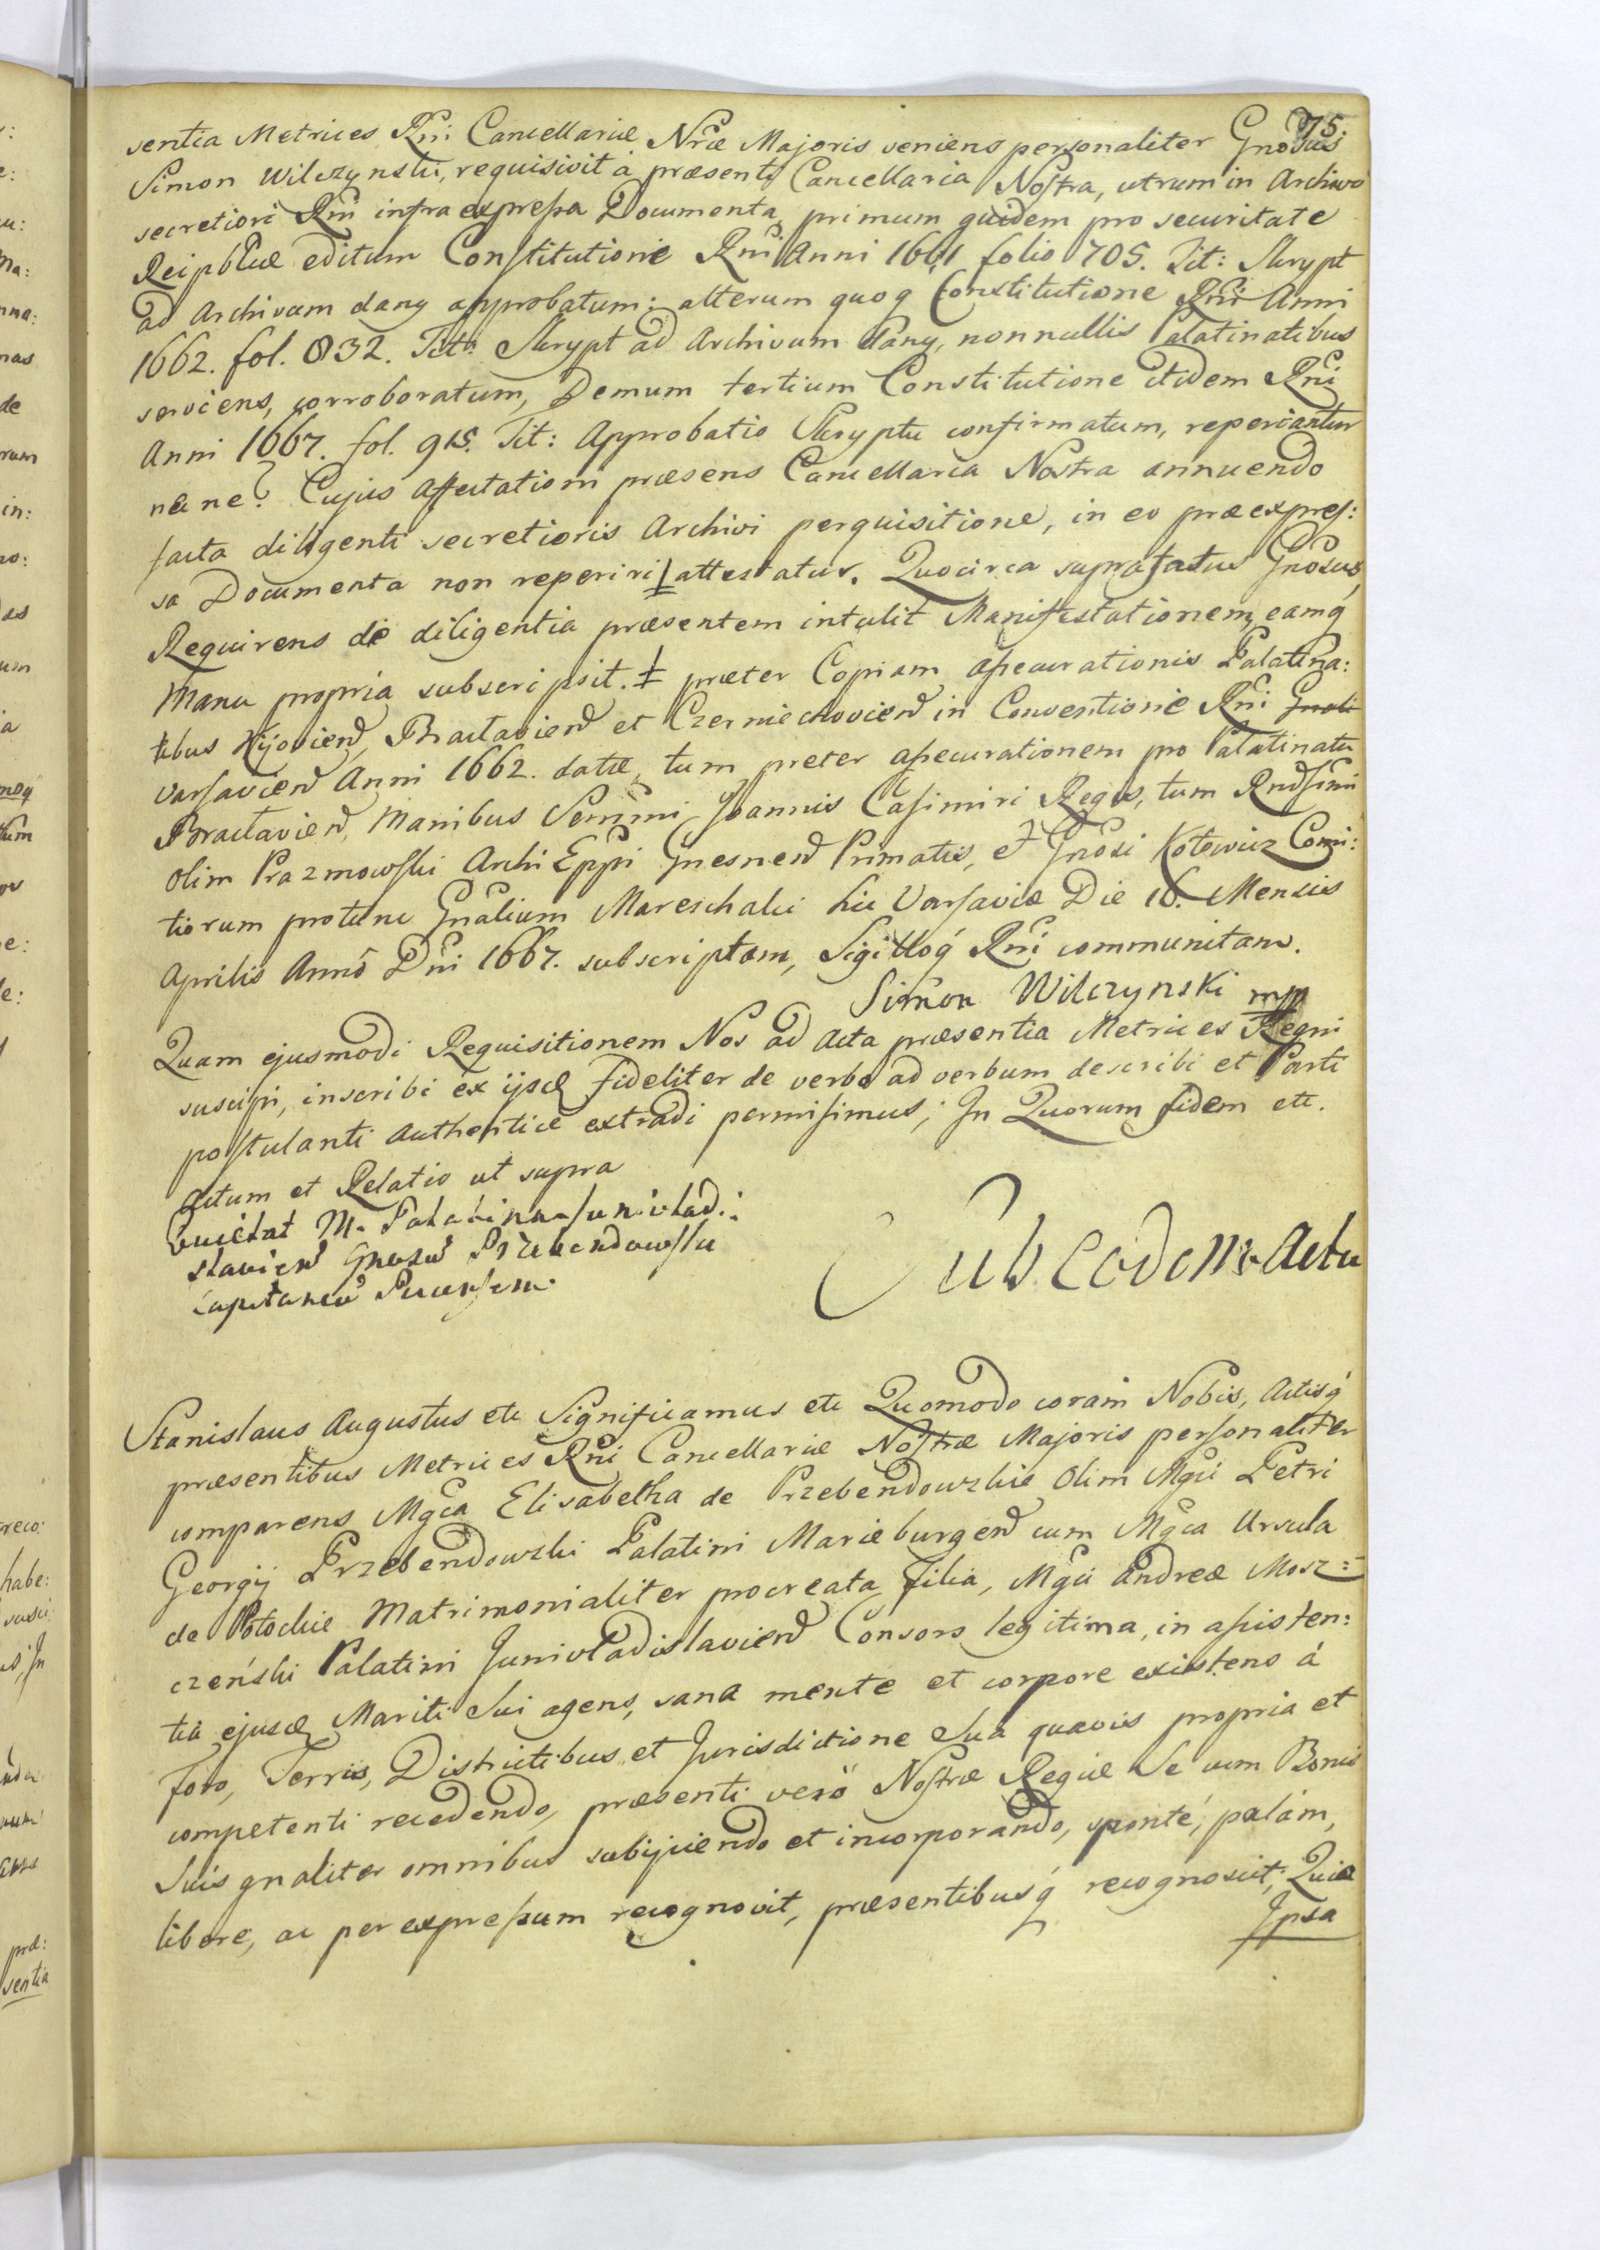 75.
sentia Metrices Rni Cancellariæ Nræ Majoris veniens personaliter Gnosus
Simon Wilczynski, requisivit á præsenti Cancellaria Nostra, utrum in Archivo
secretiori Rni infra expressa Documenta, primum quidem pro securitate
Reipblicæ editum Constitutione Rni Anni 1661 folio 705. Tit: Skrypt
ad Archivum dany approbatum: alterum quoq Constitutione Rni Anni
1662. fol. 832. Tit: Skrypt ad Archivum dany, nonnullis Palatinatibus
serviens, corroboratum, Demum tertium Constitutione itidem Rni
Anni 1667. fol. 915. Tit: Approbatio Skryptu confirmatum, reperiantur
nè ne? Cujus affectationi præsens Cancellaria Nostra annuendo
facta diligenti secretioris Archivi perquisitione, in eo præexpres:
sa Documenta non reperiri ‡ attestatur. Quocirca suprafatus Gnosus,
Requirens de diligentia præsentem intulit Manifestationem, eamq́
Manu propria subscripsit. ‡ præter Copiam Assecurationis Palatina:
tibus Kijovien, Bractavien et Czerniechovien in Conventione Rni Gnali
Varsavien Anni 1662. datæ, tum preter assecurationem pro Palatinatu
Bractavien, Manibus Sermi Joannis Casimiri Regis, tum Rndssimi
olim Prazmowski Archi Eppi Gnesnen Primatis, et Gnosi Kotowicz Comi:
tiorum protunc Gnalium Mareschalci hic Varsaviæ Die 16. Mensis
Aprilis Annó Dni 1667. subscriptam, Sigilloq́ Rni communitam.
Simon Wilczynski mp
Quam ejusmodi Requisitionem Nos ad Acta præsentia Metrices Regni
suscipi, inscribi ex ijsd fideliter de verbo ad verbum describi et Parti
postulanti authenticè extradi permisimus; In Quorum fidem etc.
Actum et Relatio ut supra
Quietat M. Palatina Junivladi:
slavien Gnosum Przebendowski
Capitaneum Pucensem.
Sub eodem Actu
Stanislaus Augustus etc Significamus etc Quomodo coram Nobis, Actisq́
præsentibus Metrices Rni Cancellariæ Nostræ Majoris personaliter
comparens Mgca Elisabetha de Przebendowskie olim Mgci Petri
Georgij Przebendowski Palatini Marieburgen cum Mgca Ursula
de Potockie Matrimonialiter procreata Filia, Mgci Andreæ Mosz:
czeński Palatini Junivladislavien Consors legitima, in assisten:
tia ejusd Mariti Sui agens, sana mente et corpore existens á
Foro, Terris, Districtibus et Jurisdictione Sua quavis propria et
competenti recedendo, præsenti veró Nostræ Regiæ Se cum Bonis
Suis gnaliter omnibus subijciendo et incorporando, sponté, palám,
libere, ac per expressum recognovit, præsentibusq́ recognoscit; Quia
Ipsa